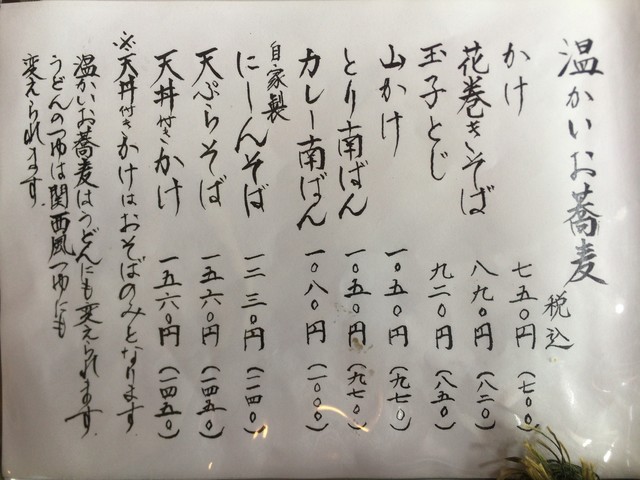 温かいお蕎麦
税込
かけ 七五〇円（七〇〇）
花巻きそば 八九〇円（八二〇）
玉子とじ 九二〇円（八五〇）
山かけ 一〇五〇円（九七〇）
とり南ばん 一〇五〇円（九七〇）
カレー南ばん 一〇八〇円（一〇〇〇）
自家製
にしんそば 一二三〇円（一一四〇）
天ぷらそば 一五六〇円（一四五〇）
天丼付きかけ 一五六〇円（一四五〇）
※天丼付きかけはおそばのみとなります
温かいお蕎麦はうどんにも変えられます
うどんのつゆは関西風つゆにも
変えられます